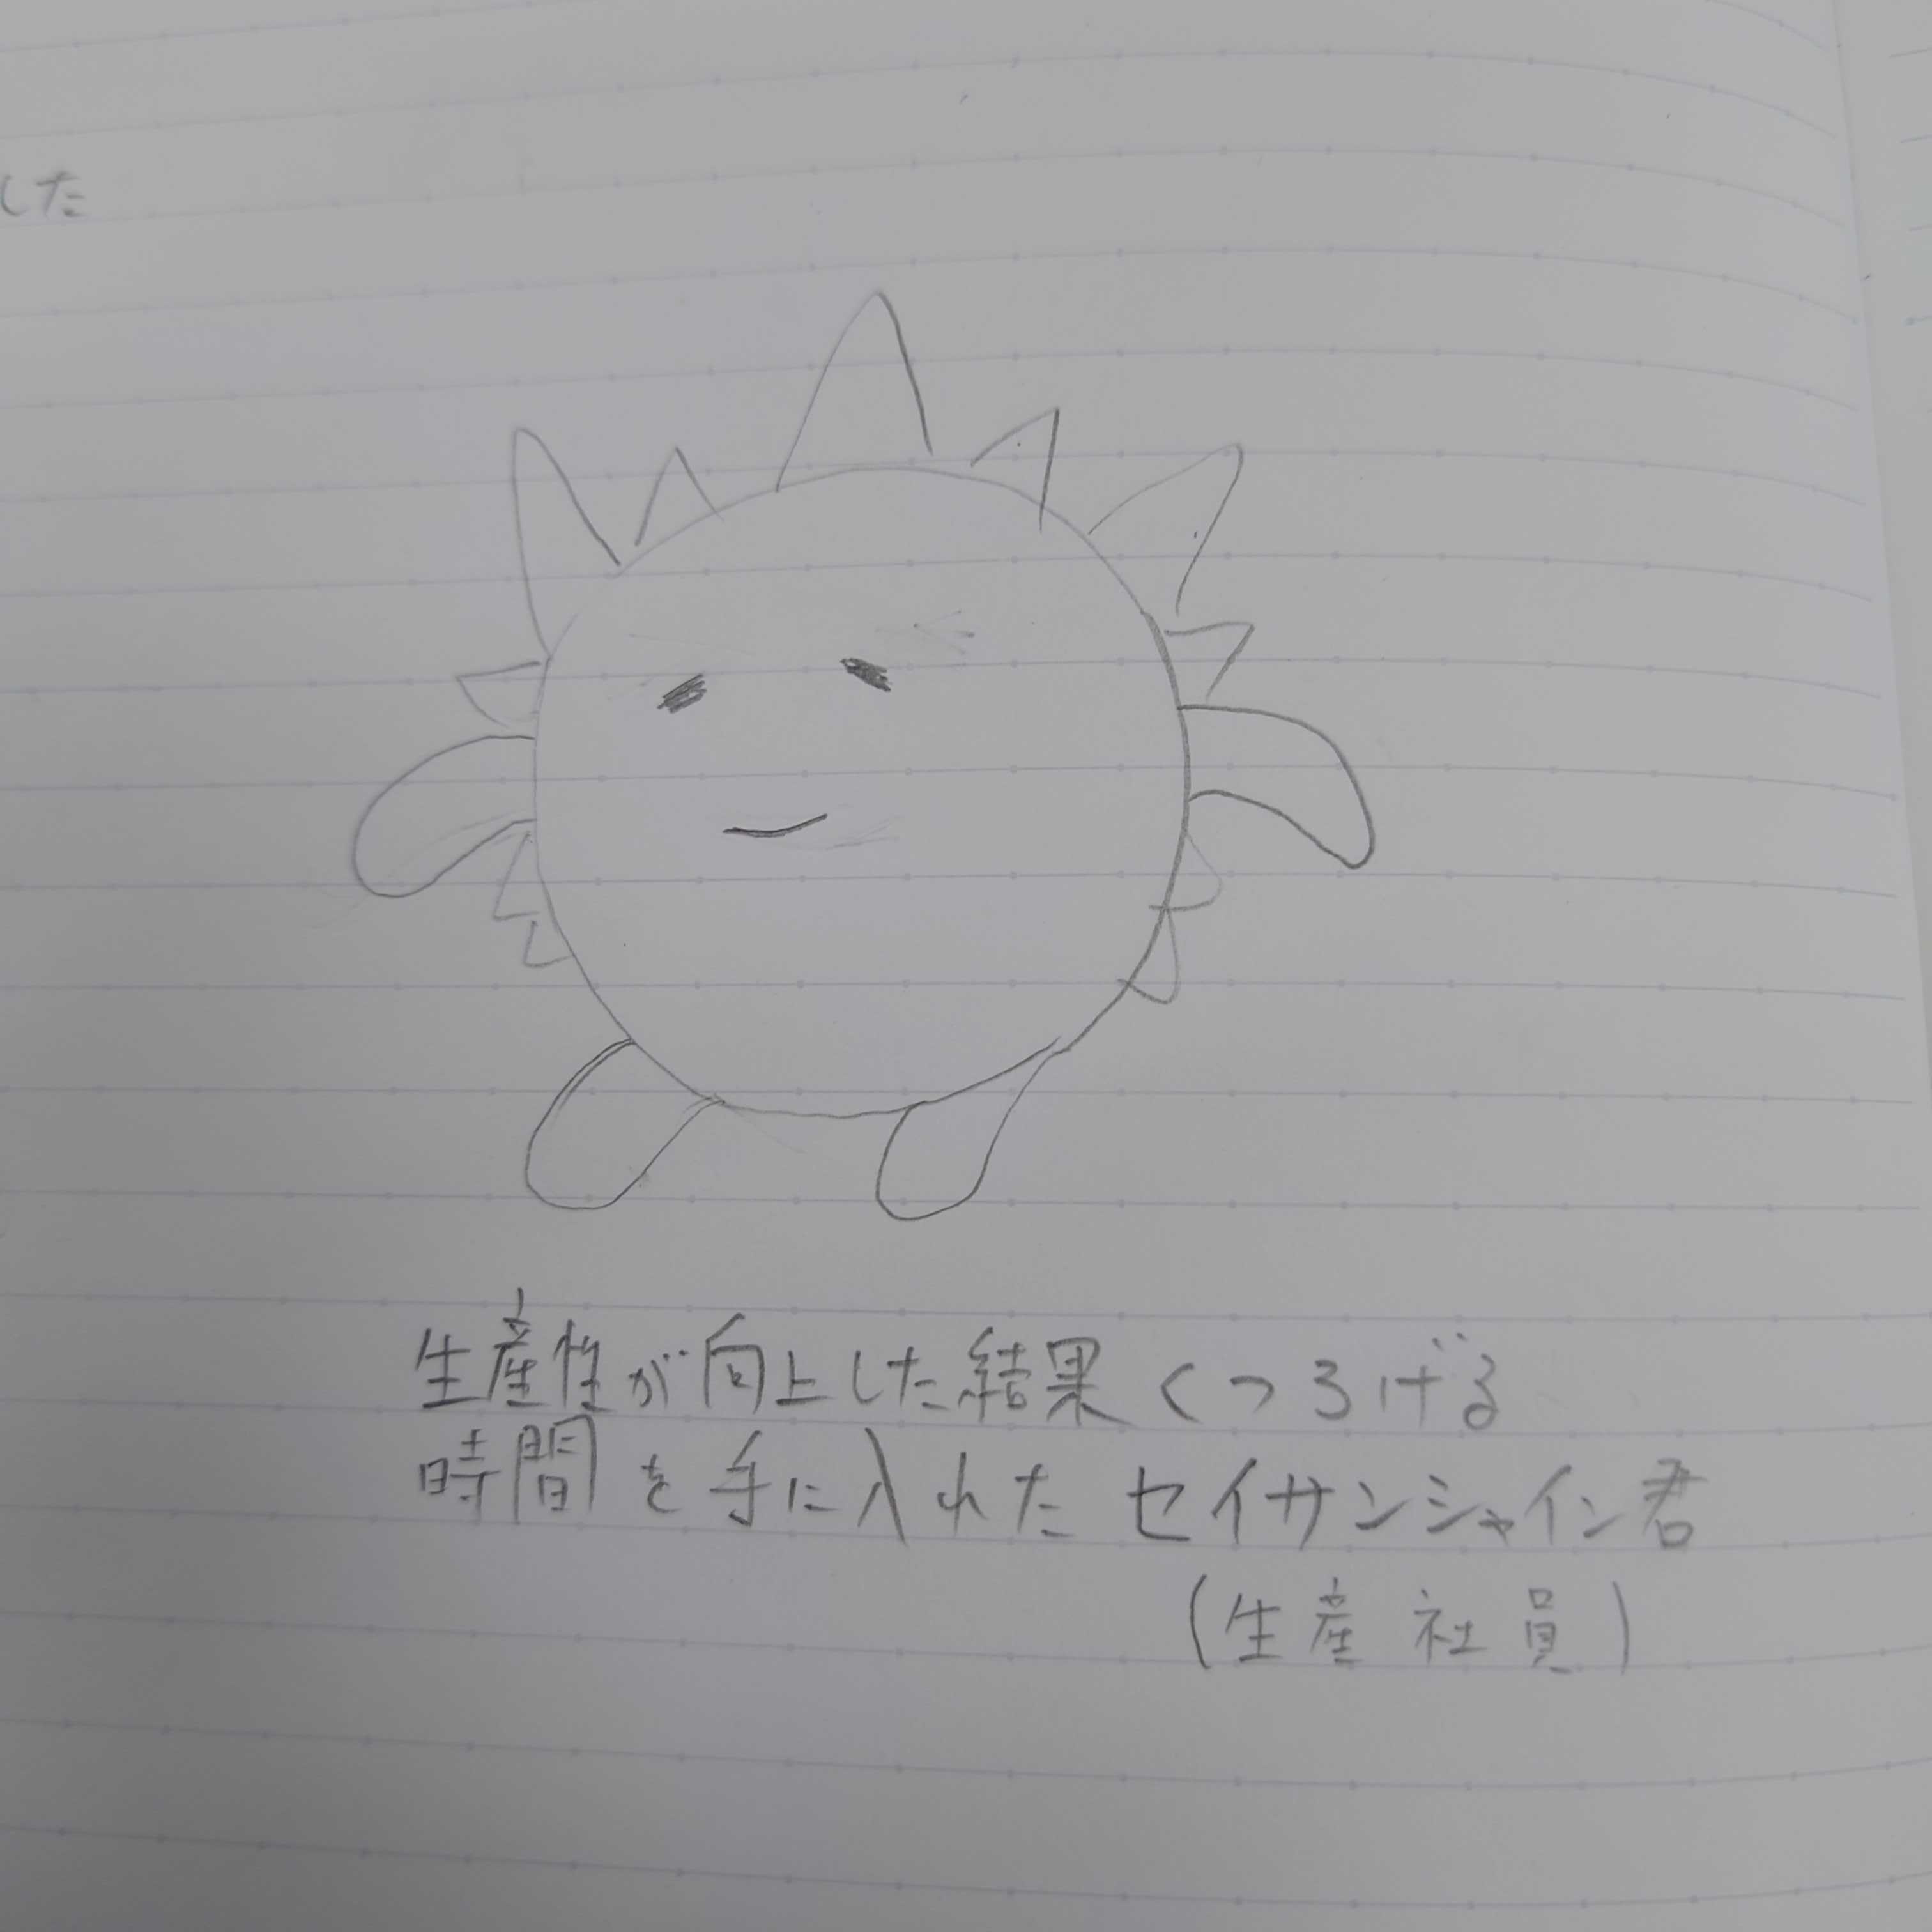 した
生産性が向上した結果くつろげる
時間を手に入れたセイサンシャイン君
(生産社員)